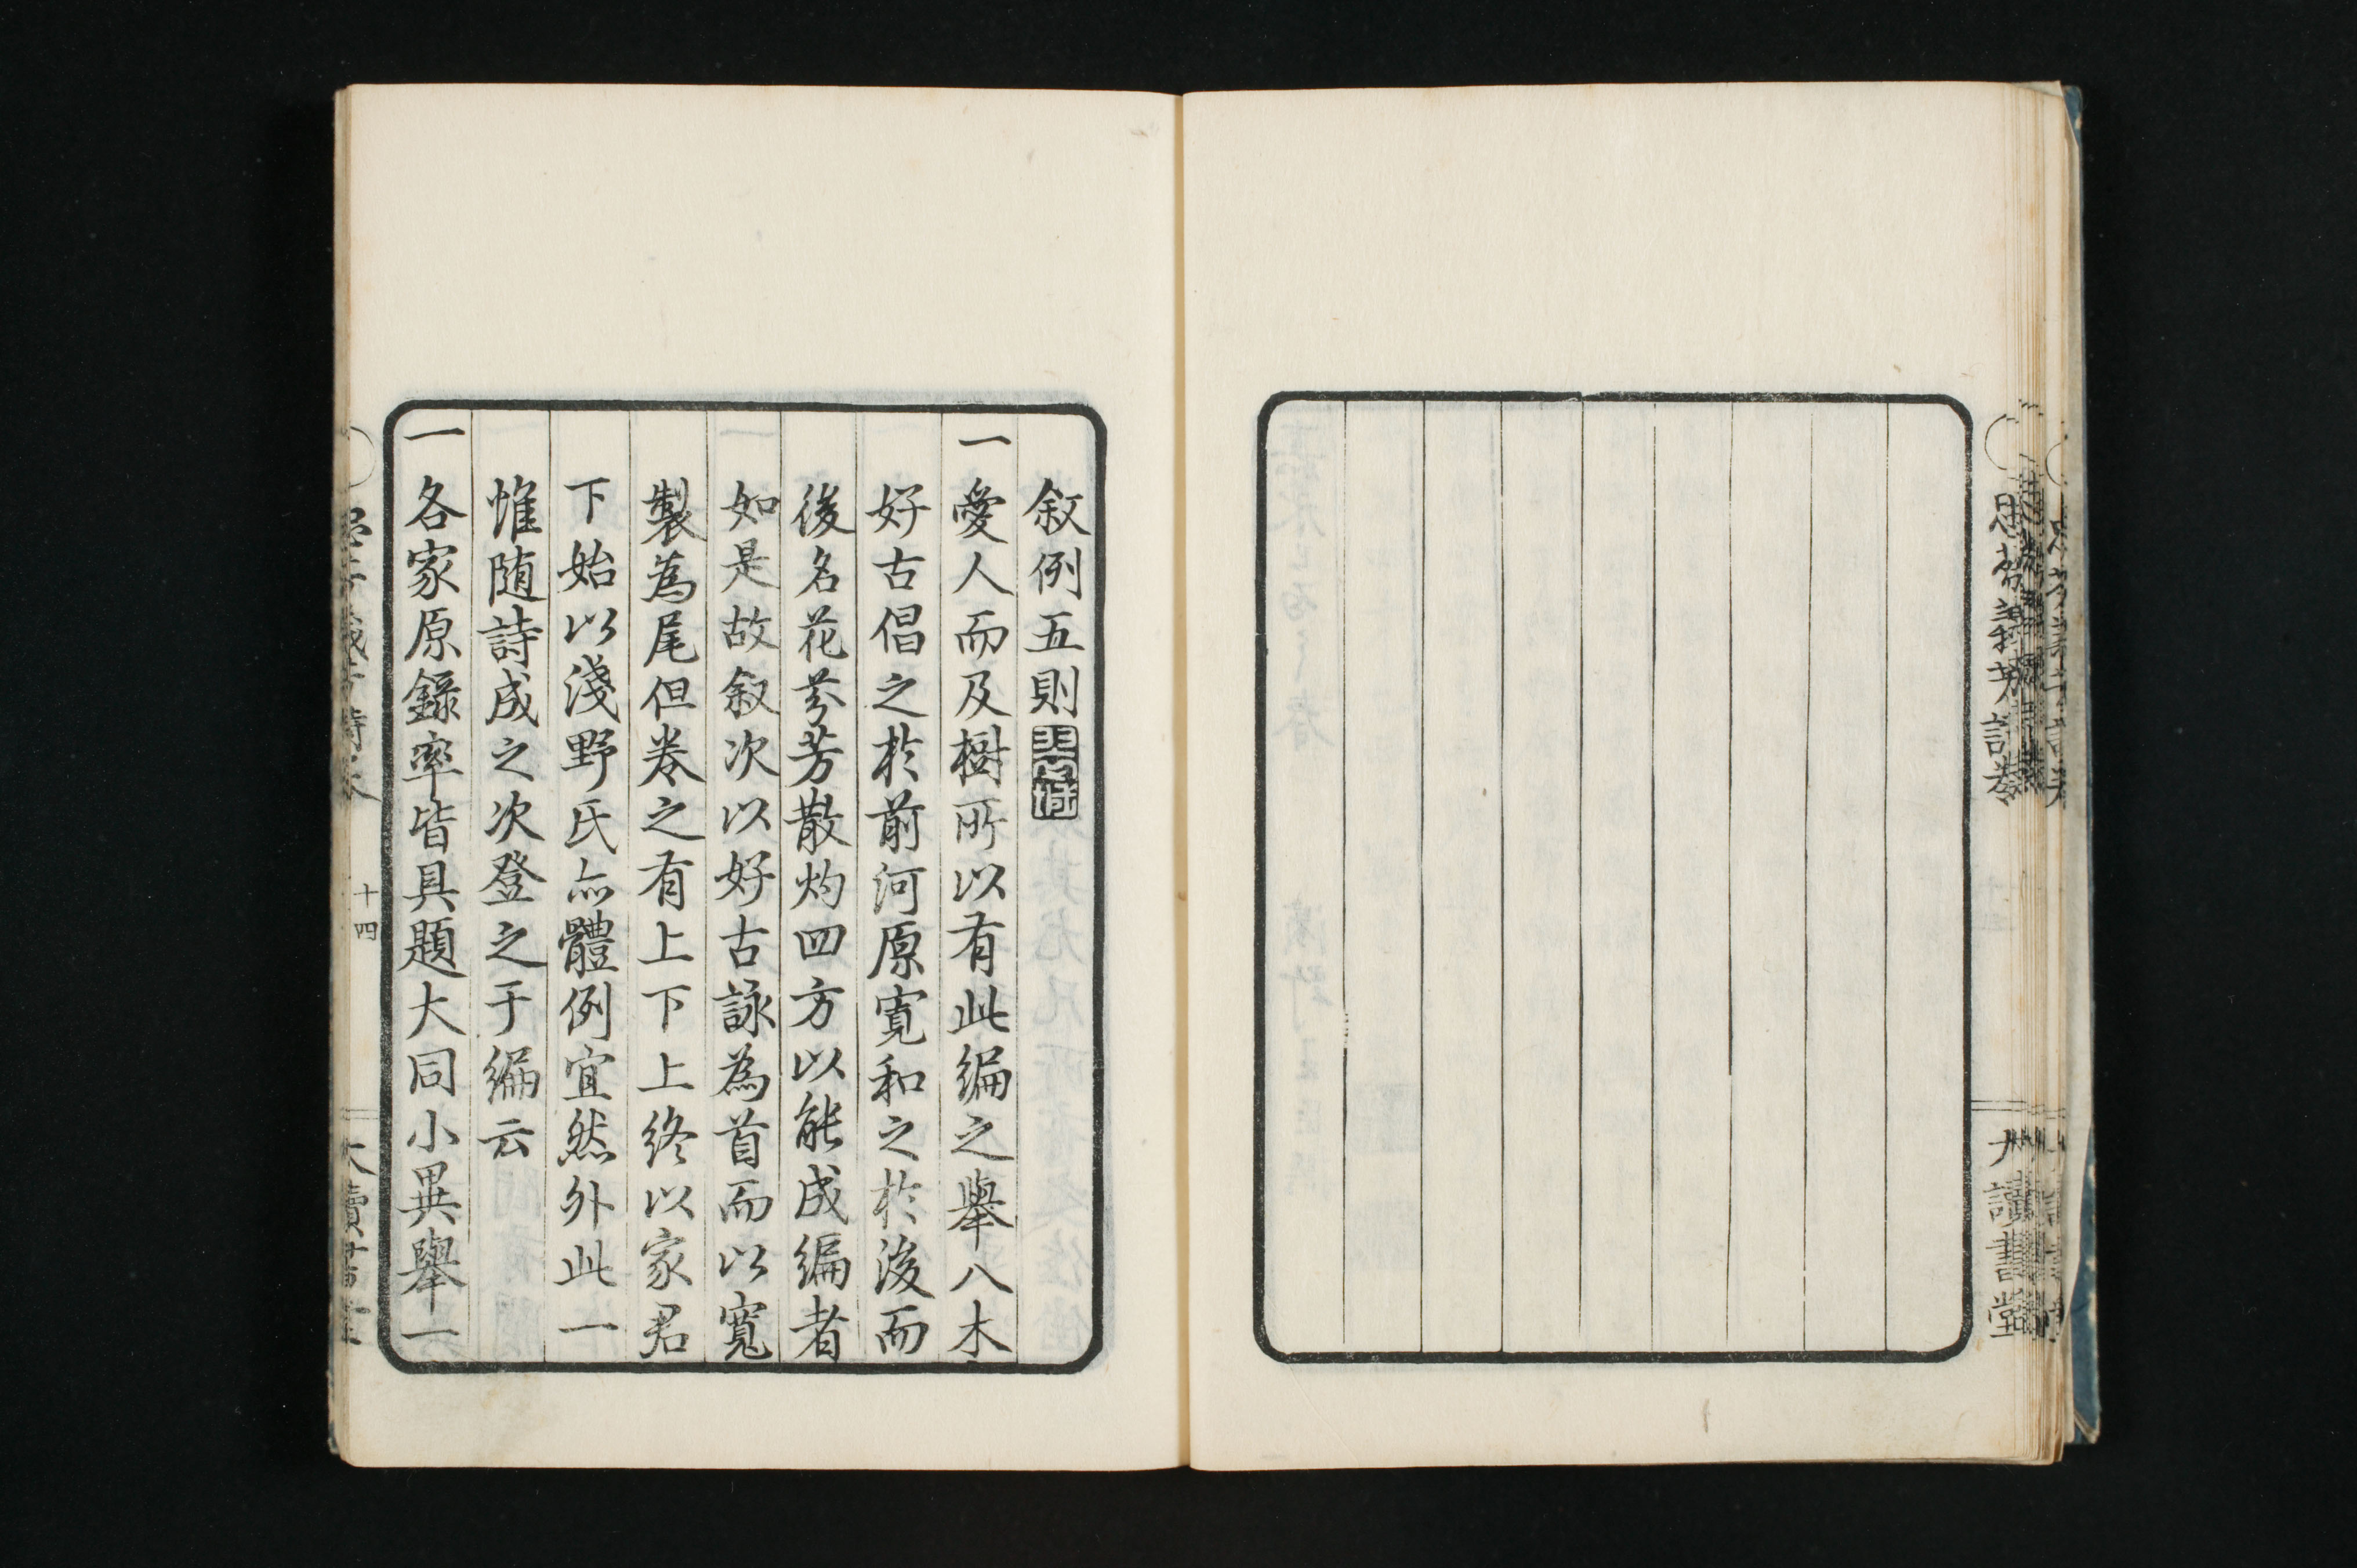 叙例五則
一愛人而及樹所以有此編之舉八木
好古倡之於前河原寛和之於後而
後名花芬芳散灼四方以能成編者
如是故叙次以好古詠為首而以寛
製為尾但巻之有上下上終以家君
下始以淺野氏亦體例宜然外此一
惟随詩成之次登之于編云
一各家原錄率皆具題大同小異舉一
十四
讀書堂